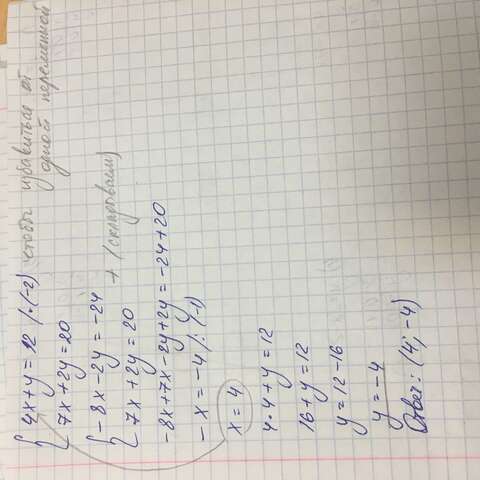 4x+y=12 /·(-2) чтобы избавиться от одной переменной
7x+2y=20
-8x-2y=-24
7x+2y=20 + (складываем)
-8x+7x-2y+2y=-24+20
-x=-4 /:(-1)
x=4
4·4+y=12
16+y=12
y=12-16
y=-4
Ответ: (4; -4)